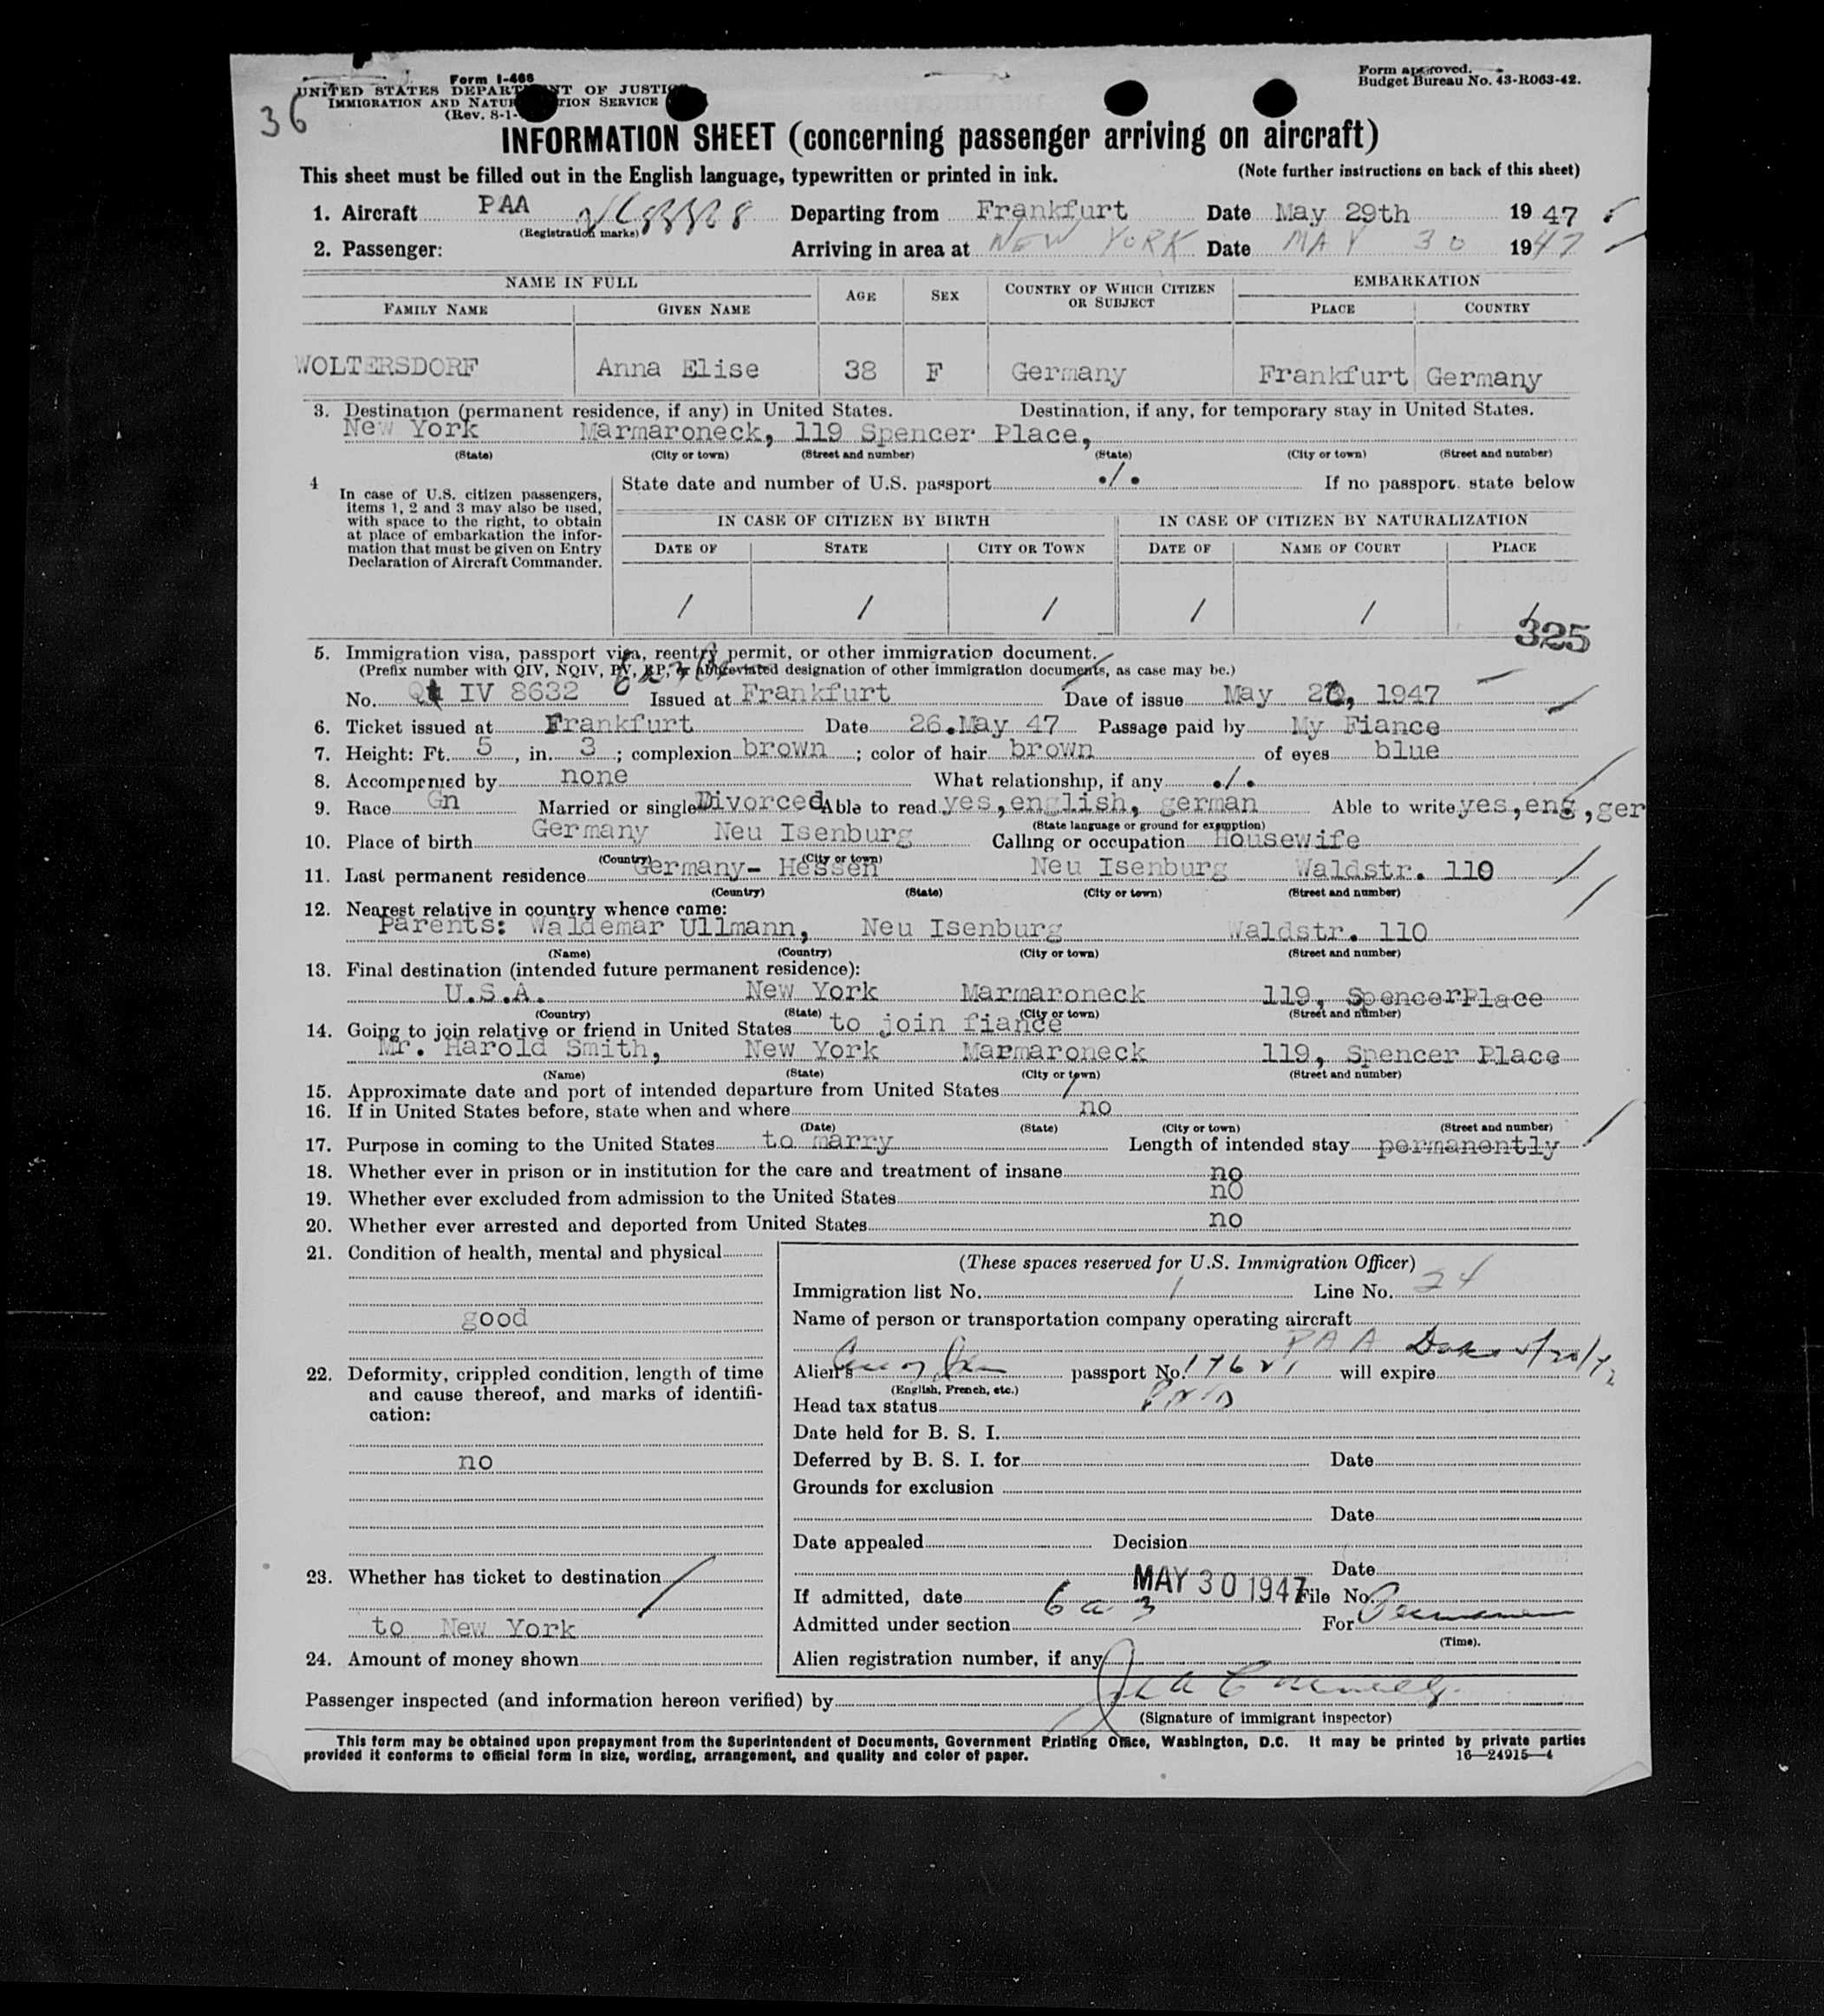 36
Form I-466
UNITED STATES DEPARTMENT OF JUSTICE
IMMIGRATION AND NATURALIZATION SERVICE
(Rev. 8-1-
Form approved.
Budget Bureau No. 43-R063-42.
INFORMATION SHEET (concerning passenger arriving on aircraft)
This sheet must be filled out in the English language, typewritten or printed in ink. (Note further instructions on back of this sheet)
1. Aircraft PAA Departing from Frankfurt Date May 29th 1947
(Registration marks)
2. Passenger: Arriving in area at NEW YORK Date MAY 30 1947
NAME IN FULL AGE SEX COUNTRY OF WHICH CITIZEN OR SUBJECT EMBARKATION
FAMILY NAME GIVEN NAME PLACE COUNTRY
WOLTERSDORF Anna Elise 38 F Germany Frankfurt Germany
3. Destination (permanent residence, if any) in United States. Destination, if any, for temporary stay in United States.
New York Marmaroneck, 119 Spencer Place,
(State) (City or town) (Street and number) (State) (City or town) (Street and number)
4 In case of U.S. citizen passengers, items 1, 2 and 3 may also be used, with space to the right, to obtain at place of embarkation the information that must be given on Entry Declaration of Aircraft Commander.
State date and number of U.S. passport ./. If no passport. state below
IN CASE OF CITIZEN BY BIRTH IN CASE OF CITIZEN BY NATURALIZATION
DATE OF STATE CITY OR TOWN DATE OF NAME OF COURT PLACE
/ / / / / /
325
5. Immigration visa, passport visa, reentry permit, or other immigration document.
(Prefix number with QIV, NQIV, PV, RP, or abbreviated designation of other immigration documents, as case may be.)
No. IV 8632 Issued at Frankfurt Date of issue May 1947
6. Ticket issued at Frankfurt Date 26.May 47 Passage paid by My Fiance
7. Height: Ft. 5, in. 3; complexion brown; color of hair brown of eyes blue
8. Accompenied by none What relationship, if any ./.
9. Race Gn Married or single Divorced Able to read yes,english, german Able to write yes,eng,ger
(State language or ground for exemption)
10. Place of birth Germany Neu Isenburg Calling or occupation Housewife
(Country) (City or town)
11. Last permanent residence Germany- Hessen Neu Isenburg Waldstr. 110
(Country) (State) (City or town) (Street and number)
12. Nearest relative in country whence came:
Parents: Waldemar Ullmann, Neu Isenburg Waldstr. 110
(Name) (Country) (City or town) (Street and number)
13. Final destination (intended future permanent residence):
U.S.A. New York Marmaroneck 119, SpencerPlace
(Country) (State) (City or town) (Street and number)
14. Going to join relative or friend in United States to join fiance
Mr. Harold Smith, New York Marmaroneck 119, Spencer Place
(Name) (State) (City or town) (Street and number)
15. Approximate date and port of intended departure from United States /
16. If in United States before, state when and where no
(Date) (State) (City or town) (Street and number)
17. Purpose in coming to the United States to marry Length of intended stay permanently
18. Whether ever in prison or in institution for the care and treatment of insane no
19. Whether ever excluded from admission to the United States no
20. Whether ever arrested and deported from United States no
21. Condition of health, mental and physical
good
22. Deformity, crippled condition, length of time
and cause thereof, and marks of identifi-
cation:
no
23. Whether has ticket to destination
to New York
24. Amount of money shown
(These spaces reserved for U.S. Immigration Officer)
Immigration list No. 1 Line No. 24
Name of person or transportation company operating aircraft
PAA
Alien's passport No. will expire
(English, French, etc.)
Head tax status PAID
Date held for B. S. I.
Deferred by B. S. I. for Date
Grounds for exclusion
Date
Date appealed Decision
Date
If admitted, date MAY 30 1947 File No.
Admitted under section 6 a 3 For
(Time).
Alien registration number, if any
Passenger inspected (and information hereon verified) by
(Signature of immigrant inspector)
This form may be obtained upon prepayment from the Superintendent of Documents, Government Printing Office, Washington, D.C. It may be printed by private parties
provided it conforms to official form in size, wording, arrangement, and quality and color of paper. 16—24915—4